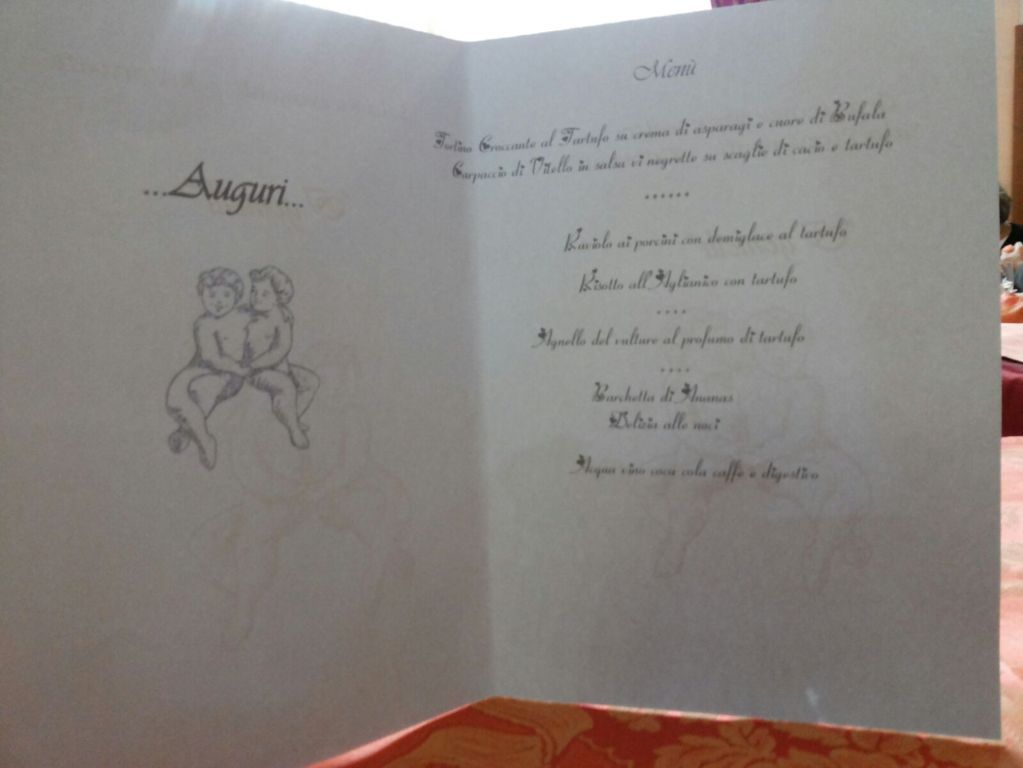 ...Auguri...
Menù
Tortino Croccante al Tartufo su crema di asparagi e cuore di Bufala
Carpaccio di Vitello in salsa vi negrette su scaglie di cacio e tartufo
......
Raviolo ai porcini con demiglace al tartufo
Risotto all'Aglianico con tartufo
....
Agnello del vulture al profumo di tartufo
....
Barchetta di Ananas
Delizia alle noci
Acqua vino coca cola caffe e digestivo